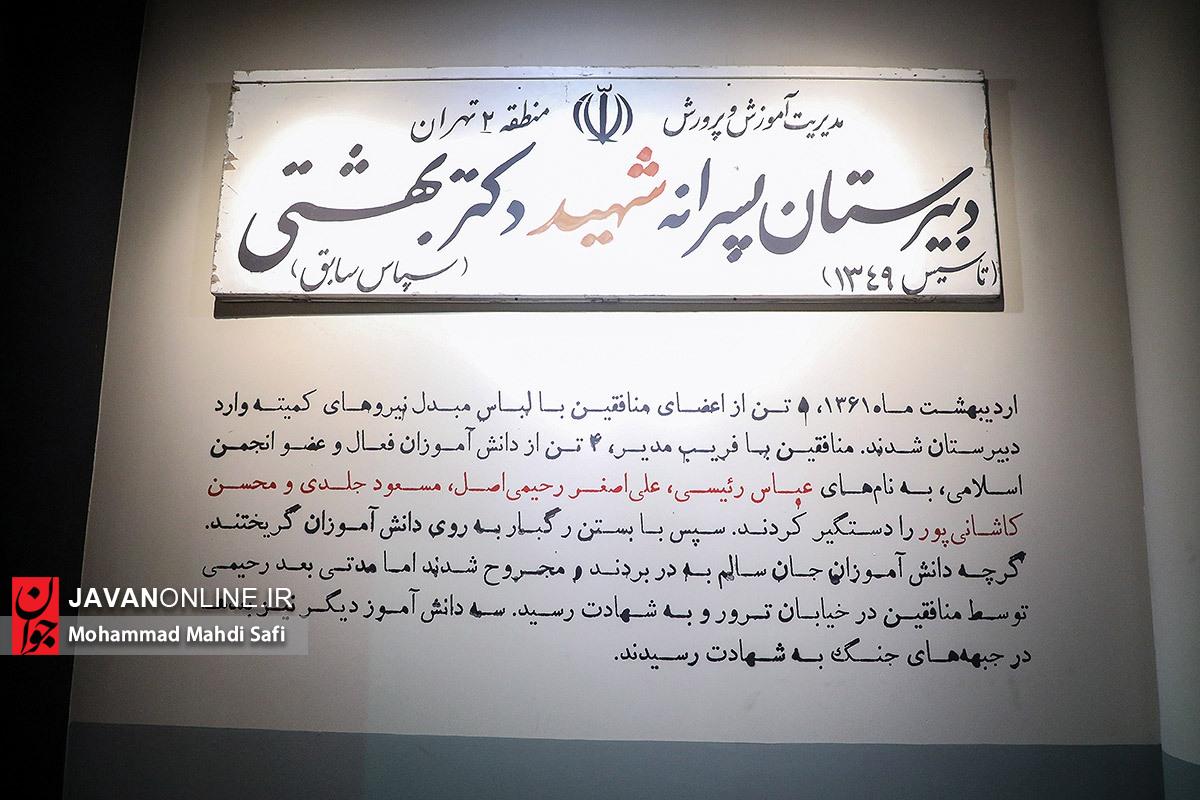 مدیریت آموزش و پرورش منطقه ۲ تهران
دبیرستان پسرانه شهید دکتر بهشتی
(تاسیس ۱۳۴۹) (سپاس سابق)
اردیبهشت ماه ۱۳۶۱، ۵ تن از اعضای منافقین با لباس مبدل نیروهای کمیته وارد
دبیرستان شدند. منافقین با فریب مدیر، ۴ تن از دانش آموزان فعال و عضو انجمن
اسلامی، به نام‌های عباس رئیسی، علی‌اصغر رحیمی‌اصل، مسعود جلدی و محسن
کاشانی‌پور را دستگیر کردند. سپس با بستن رگبار به روی دانش آموزان گریختند.
گرچه دانش آموزان جان سالم به در بردند و مجروح شدند اما مدتی بعد رحیمی
توسط منافقین در خیابان ترور و به شهادت رسید. سه دانش آموز دیگر نیز بعدها
در جبهه‌های جنگ به شهادت رسیدند.
جوان
JAVANONLINE.IR
Mohammad Mahdi Safi